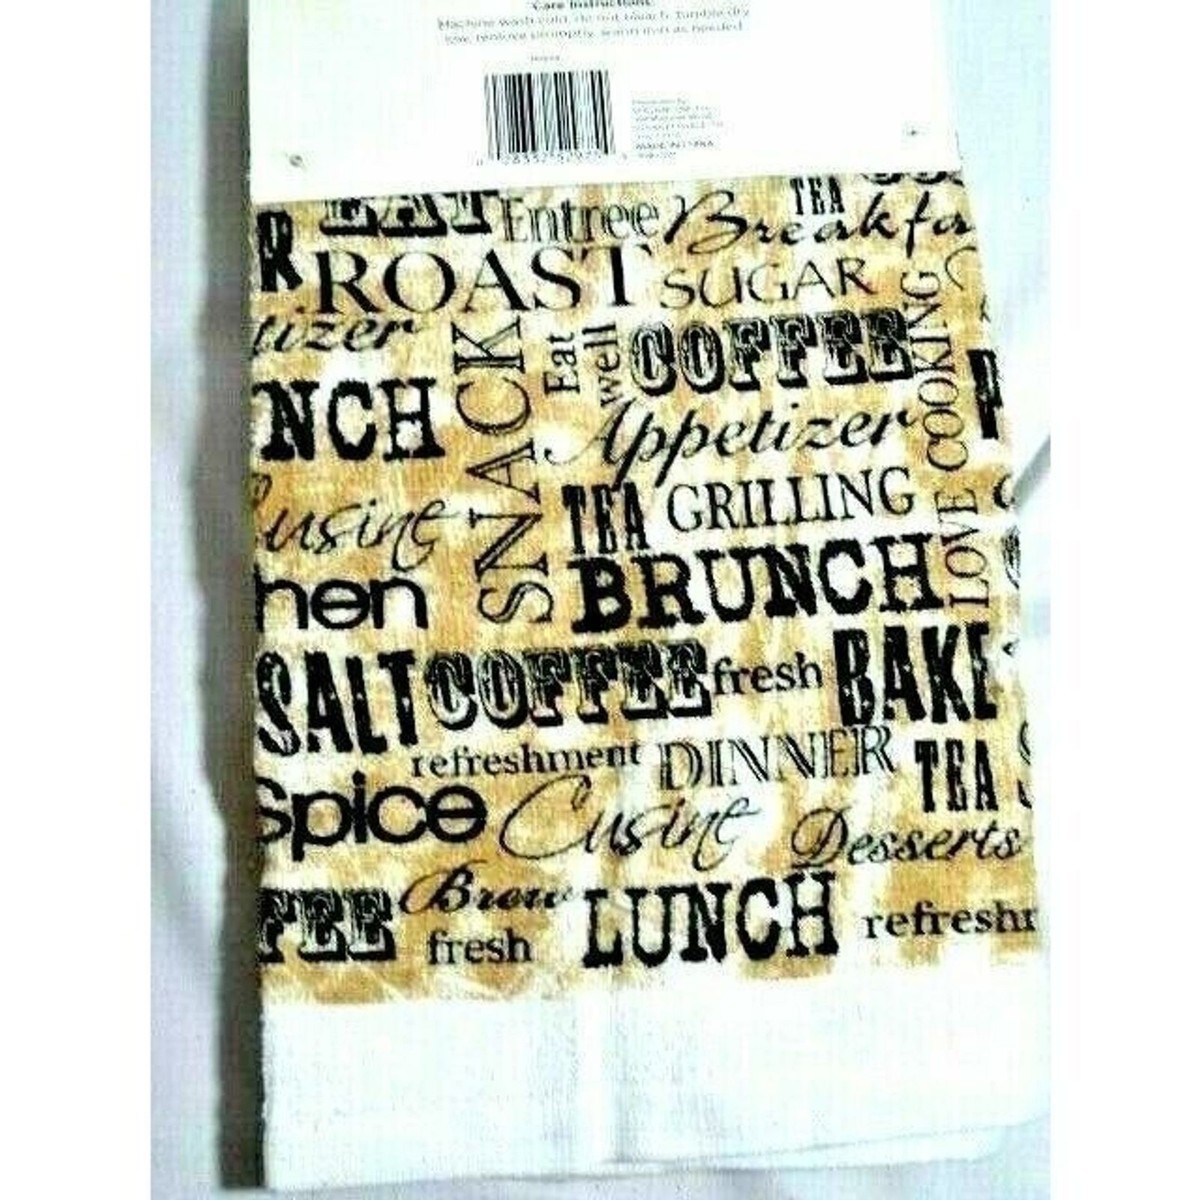 Care Instructions
Machine wash cold, do not bleach, tumble dry
low, remove promptly, warm iron as needed
MADE IN CHINA
EAT Entree Breakfa TEA
R ROAST SUGAR
tizer SNACK Eat well COFFEE LOVE COOKING
NCH Appetizer
usine TEA GRILLING
hen BRUNCH
SALT COFFEE fresh BAKE
refreshment DINNER TEA S
Spice Cusine Desserts
FEE Brew LUNCH refreshr
fresh